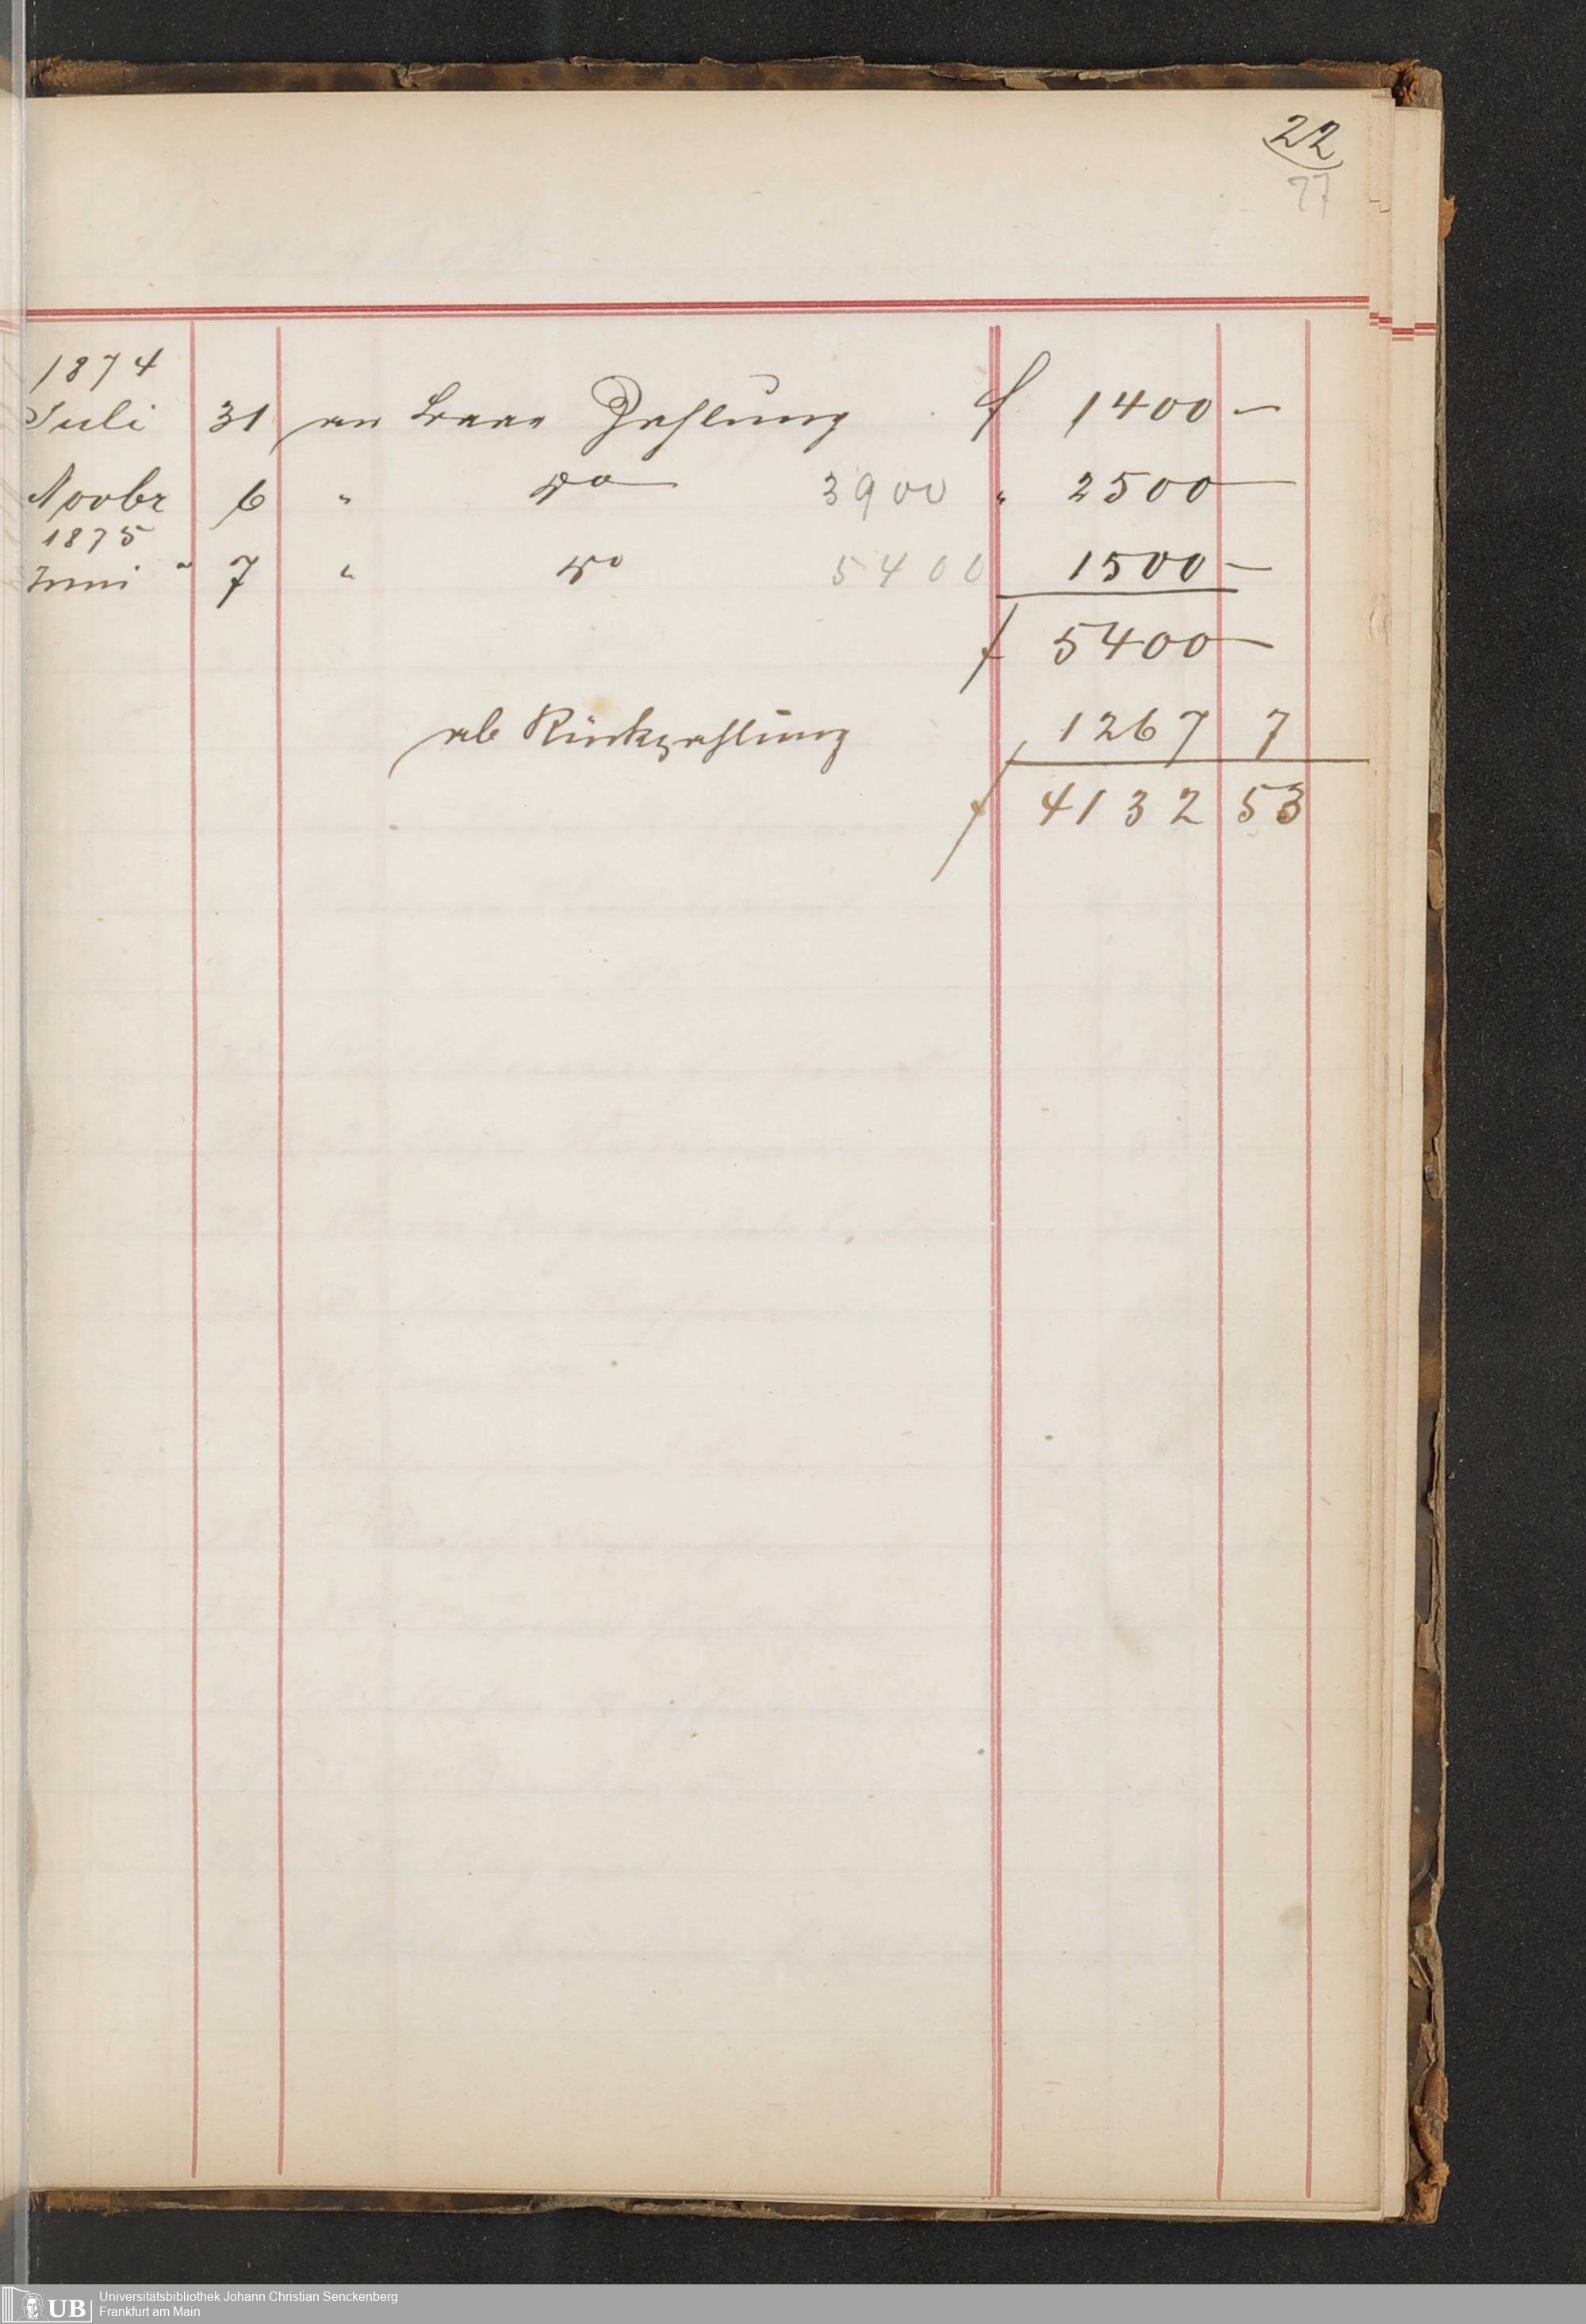 22
77
1874
Juli 31 an baar Zahlung f 1400 —
Novbr 6 " do 3900 " 2500 —
1875
Juni " 7 " do 5400 1500 —
f 5400 —
ab Rückzahlung 1267 7
f 4132 53
UB Universitätsbibliothek Johann Christian Senckenberg
Frankfurt am Main